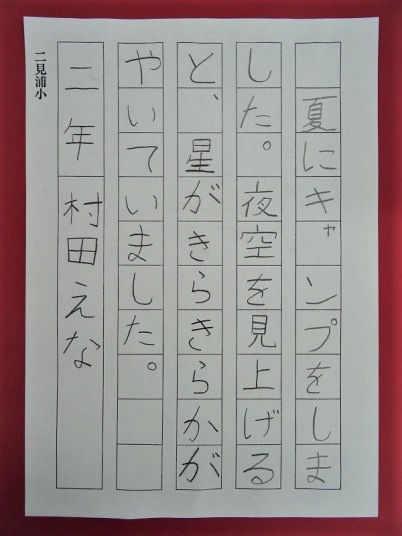 夏にキャンプをしま
した。夜空を見上げる
と、星がきらきらかが
やいていました。
二年 村田えな
二見浦小